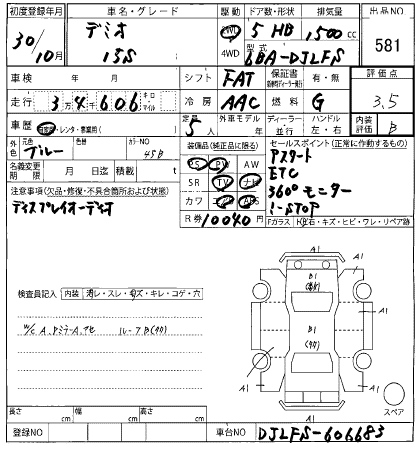 初度登録年月 車名・グレード 駆動 ドア数・形状 排気量 出品NO
30/10月 デミオ 15S 2WD 4WD 5 HB 1500cc 581
型式 6BA-DJLFS
車検 年 月 シフト FAT 保証書 有・無 評価点
走行 34606 キロ マイル 冷房 AAC 燃料 G 3.5
車歴 自家用・レンタ・事業用( ) 定員 5人 外車モデル 年 ディーラー 並行 ハンドル 左・右 内装評価 B
外色 元色 ブルー 色替 カラーNO 45B
装備品(純正品に限る)
セールスポイント(正常に作動するもの)
名義変更期限 月 日迄 積載 t
PS PW AW
SR TV ナビ
カワ エアB ABS
R券 10040円
Pスタート
ETC
360°モニター
i-STOP
注意事項(欠品・修復・不具合箇所および状態)
ディスプレイオーディオ
Fガラス
検査員記入 内装 汚レ・スレ・キズ・キレ・コゲ・穴
W/C A.ドミラーA.アセ ルーフB(多)
A1
B1
A1
A1
A1
B1
A1
A1
A1
スペア
長さ cm 幅 cm 高さ cm
登録NO 車台NO DJLFS-606683